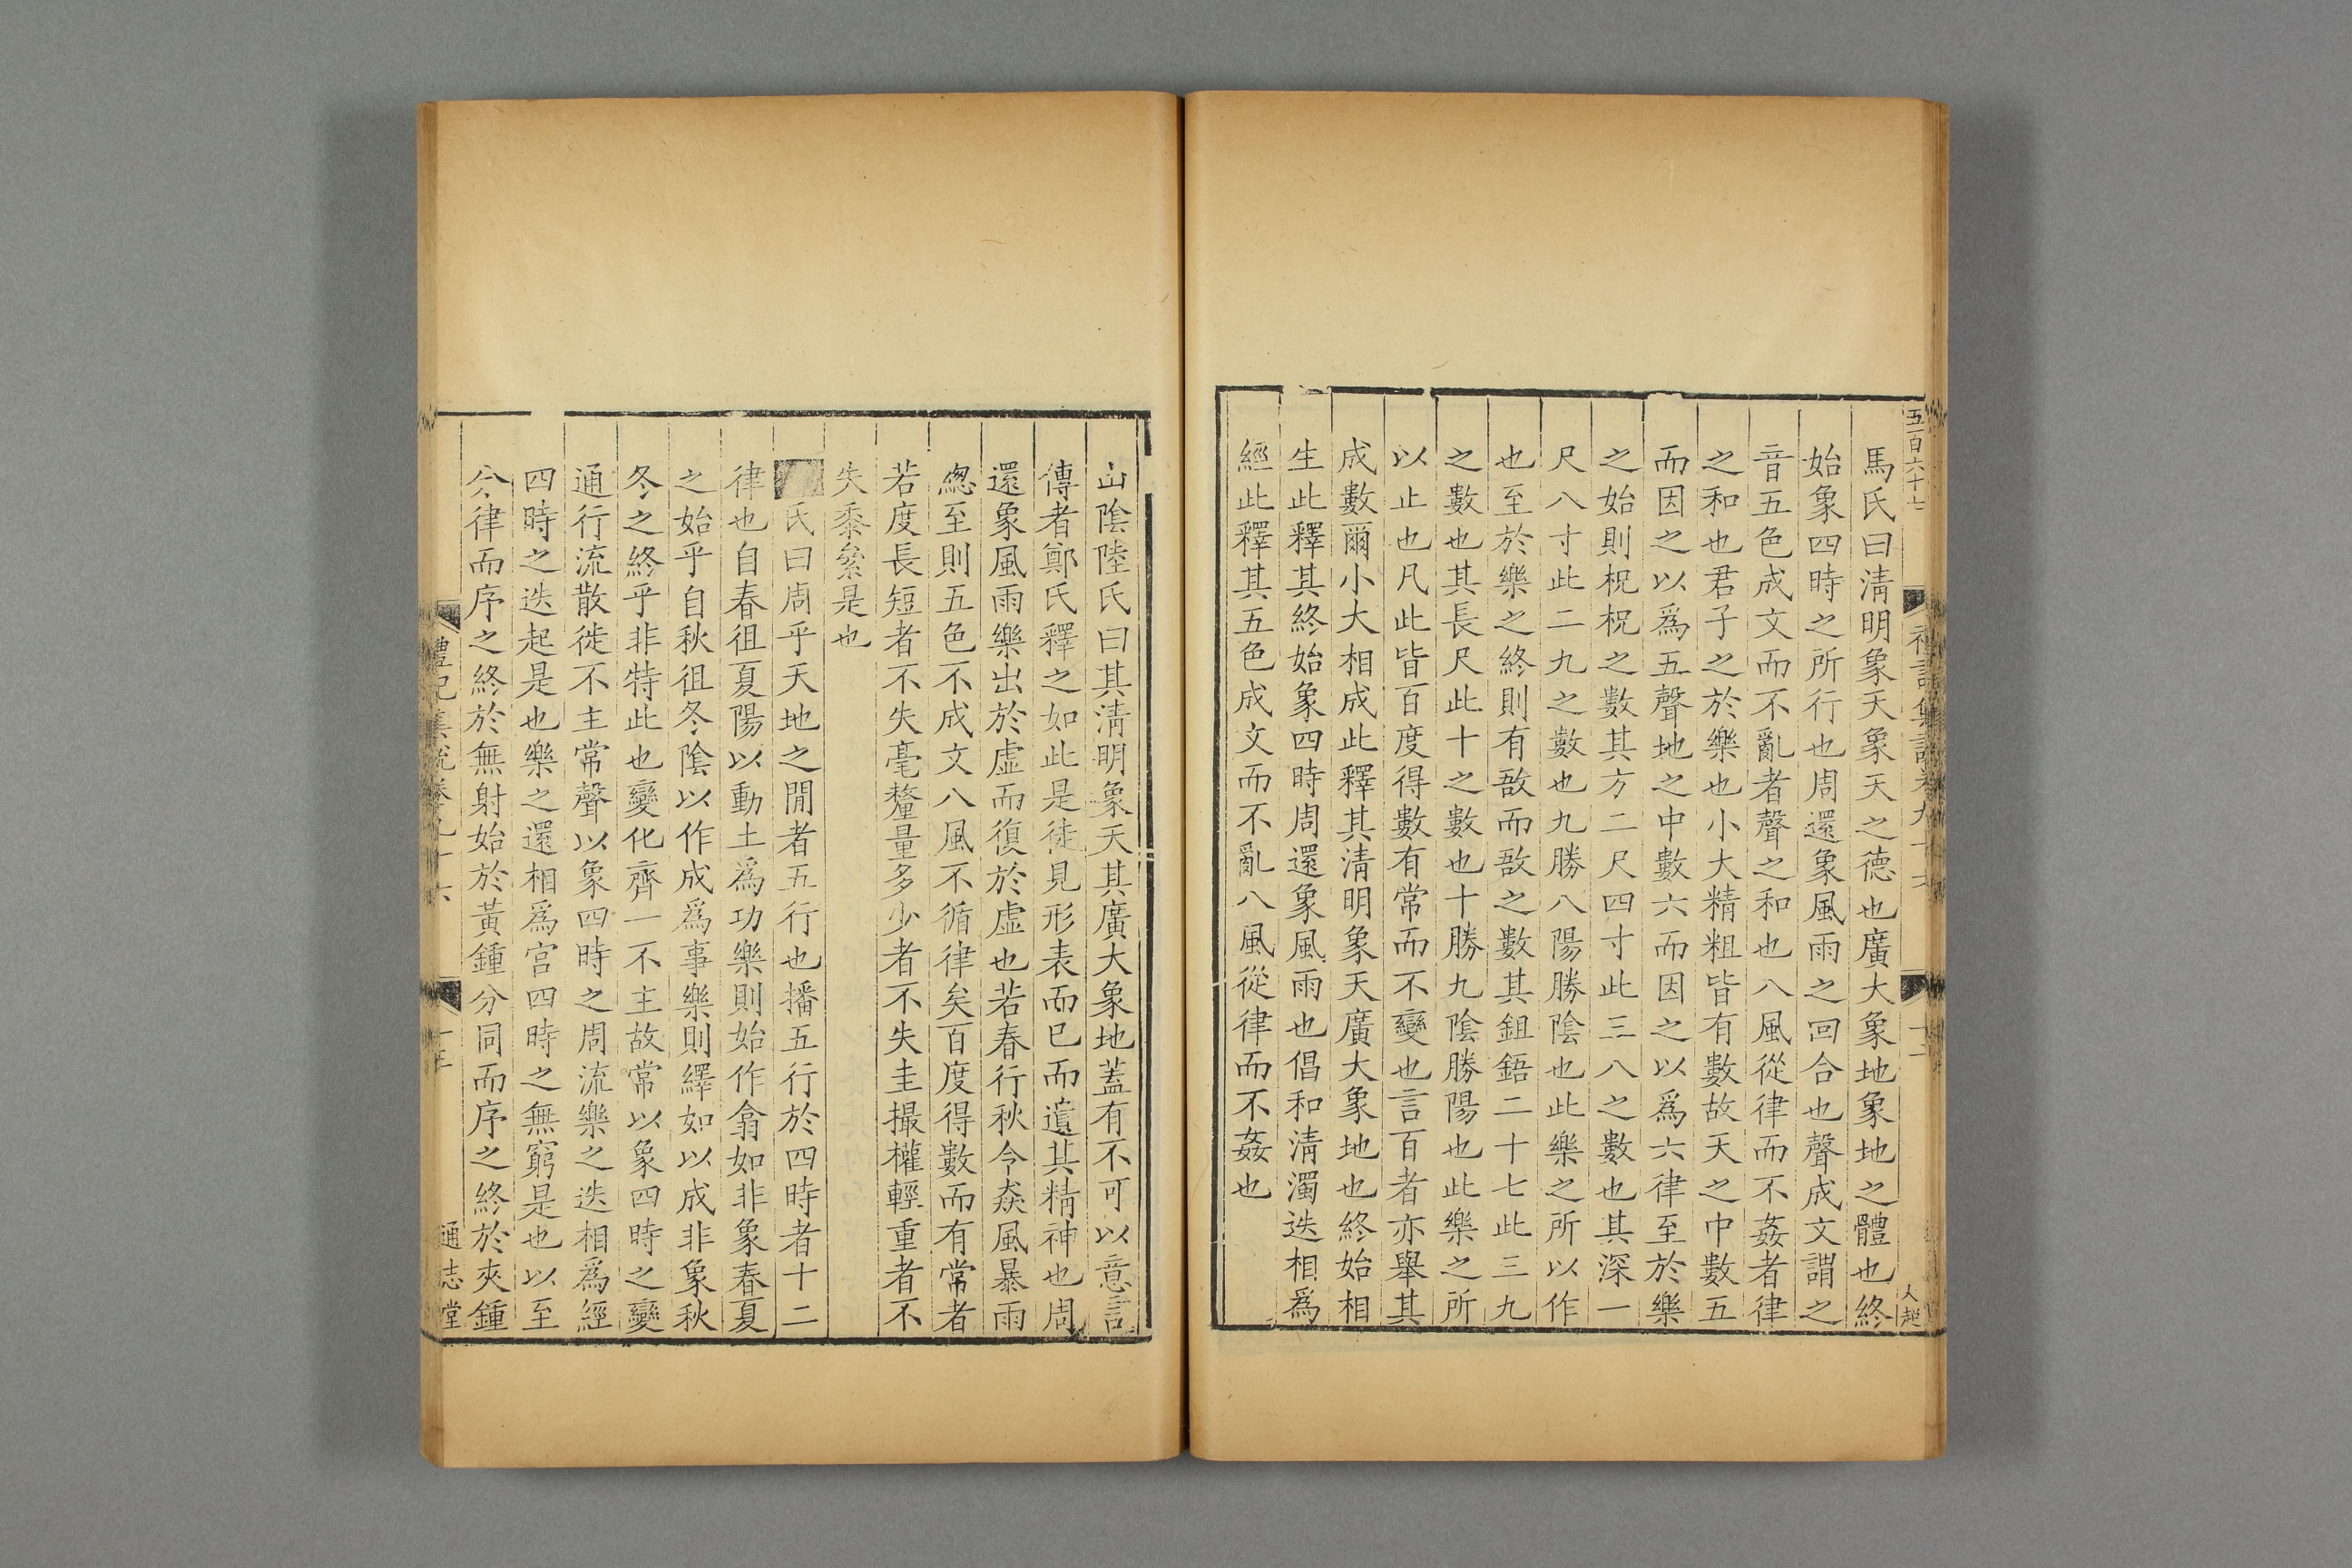 五百六十七
禮記集說卷九十六
馬氏曰淸明象天象天之德也廣大象地象地之體也終
始象四時之所行也周還象風雨之回合也聲成文謂之
音五色成文而不亂者聲之和也八風從律而不姦者律
之和也君子之於樂也小大精粗皆有數故天之中數五
而因之以爲五聲地之中數六而因之以爲六律至於樂
之始則柷柷之數其方二尺四寸此三八之數也其深一
尺八寸此二九之數也九勝八陽勝陰也此樂之所以作
也至於樂之終則有敔而敔之數其鉏鋙二十七此三九
之數也其長尺此十之數也十勝九陰勝陽也此樂之所
以止也凡此皆百度得數有常而不變也言百者亦舉其
成數爾小大相成此釋其淸明象天廣大象地也終始相
生此釋其終始象四時周還象風雨也倡和淸濁迭相爲
經此釋其五色成文而不亂八風從律而不姦也
山陰陸氏曰其淸明象天其廣大象地蓋有不可以意言
傳者鄭氏釋之如此是徒見形表而已而遺其精神也周
還象風雨樂出於虛而復於虛也若春行秋令猋風暴雨
緫至則五色不成文八風不循律矣百度得數而有常者
若度長短者不失毫釐量多少者不失圭撮權輕重者不
失黍絫是也
氏曰周乎天地之閒者五行也播五行於四時者十二
律也自春徂夏陽以動土爲功樂則始作翕如非象春夏
之始乎自秋徂冬陰以作成爲事樂則繹如以成非象秋
冬之終乎非特此也變化齊一不主故常以象四時之變
通行流散徙不主常聲以象四時之周流樂之迭相爲經
四時之迭起是也樂之還相爲宮四時之無窮是也以至
分律而序之終於無射始於黃鍾分同而序之終於夾鍾
禮記集說卷九十六
通志堂